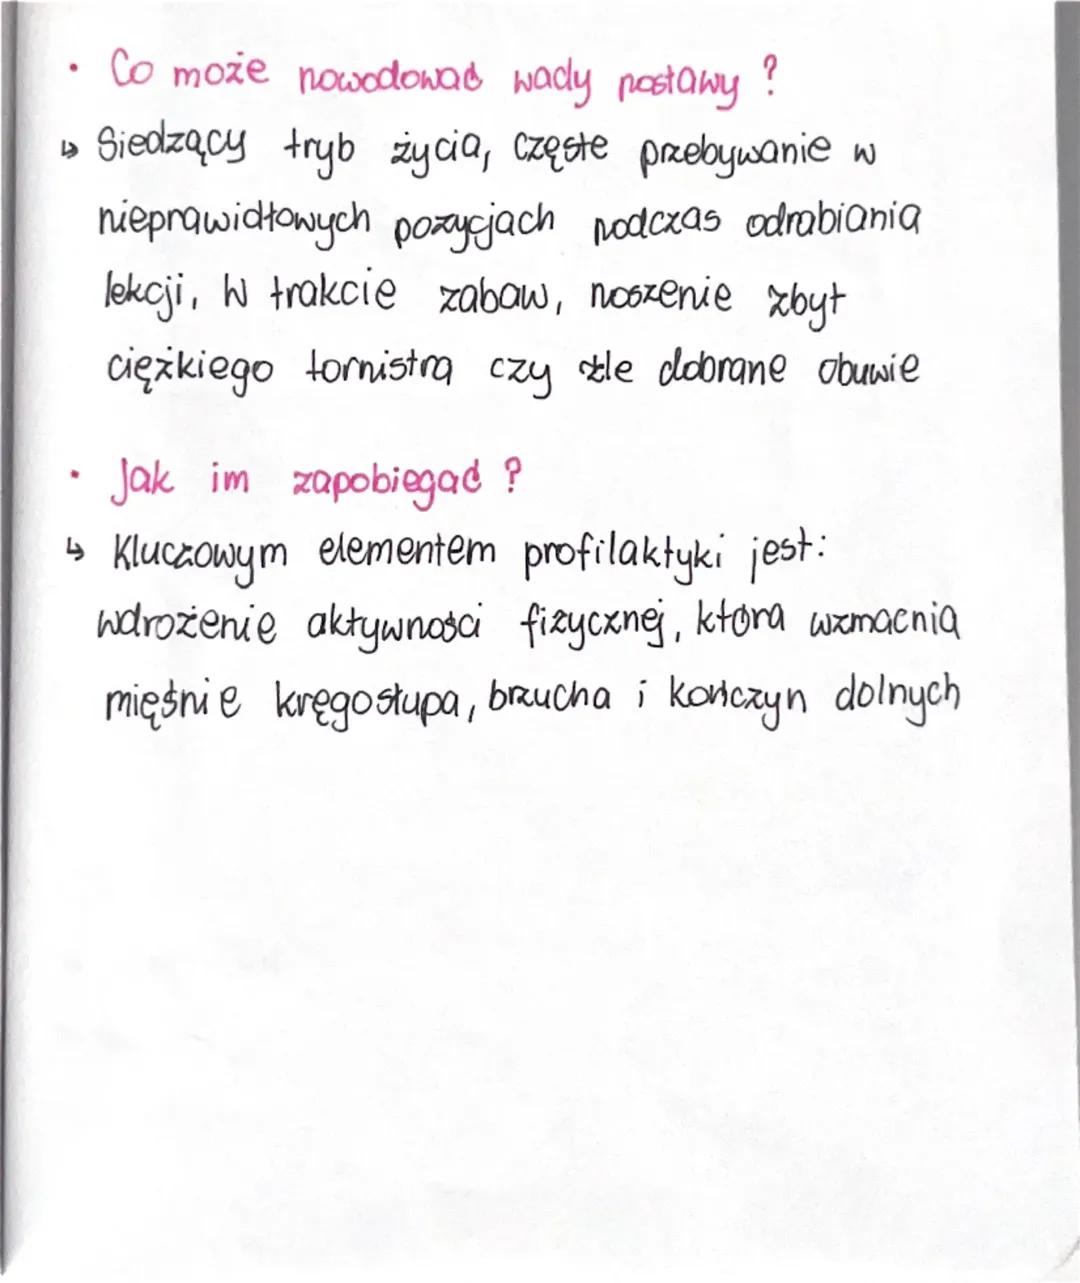 • Co może powodować wady postawy ?
↳ Siedzący tryb życia, częste przebywanie w
nieprawidłowych pozycjach podczas odrabiania
lekcji, w trakcie zabaw, noszenie zbyt
ciężkiego tornistra czy źle dobrane obuwie
• Jak im zapobiegać ?
↳ Kluczowym elementem profilaktyki jest:
wdrożenie aktywności fizycznej, która wzmacnia
mięśnie kręgosłupa, brzucha i kończyn dolnych